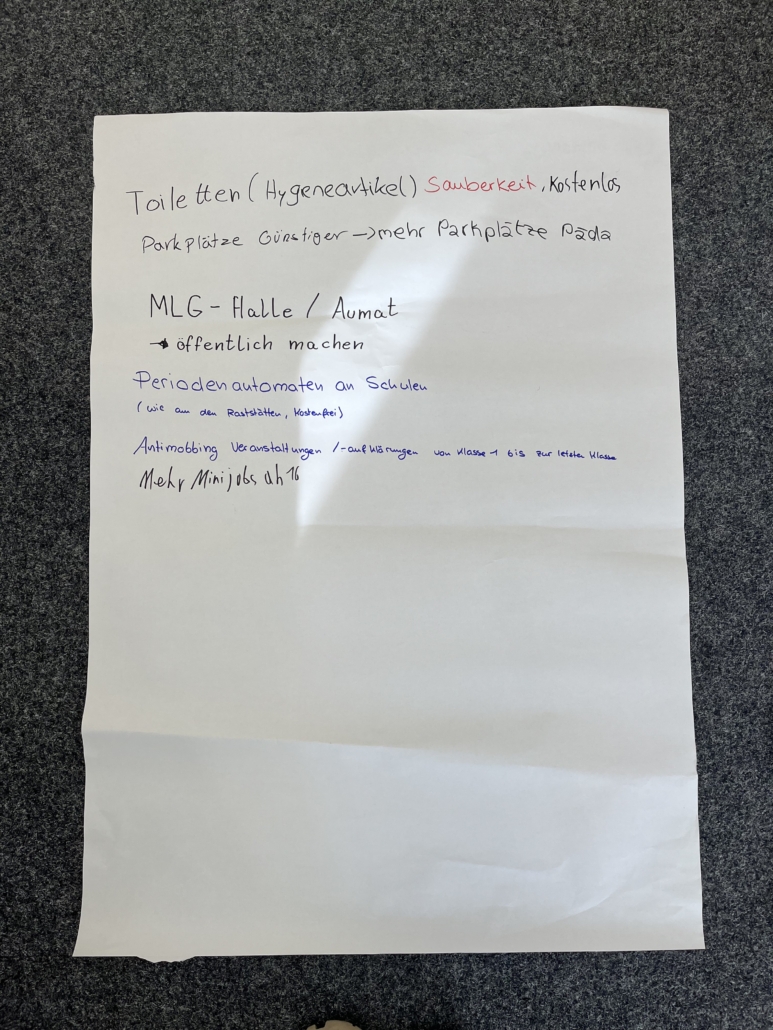 Toiletten (Hygeneartikel) Sauberkeit, Kostenlos
Parkplätze Günstiger →mehr Parkplätze Päda
MLG - Halle / Aumat
→ öffentlich machen
Periodenautomaten an Schulen
(wie an den Raststätten, Kostenfrei)
Antimobbing Veranstaltungen /-aufklärungen von Klasse 1 bis zur letzten Klasse
Mehr Minijobs ab 16